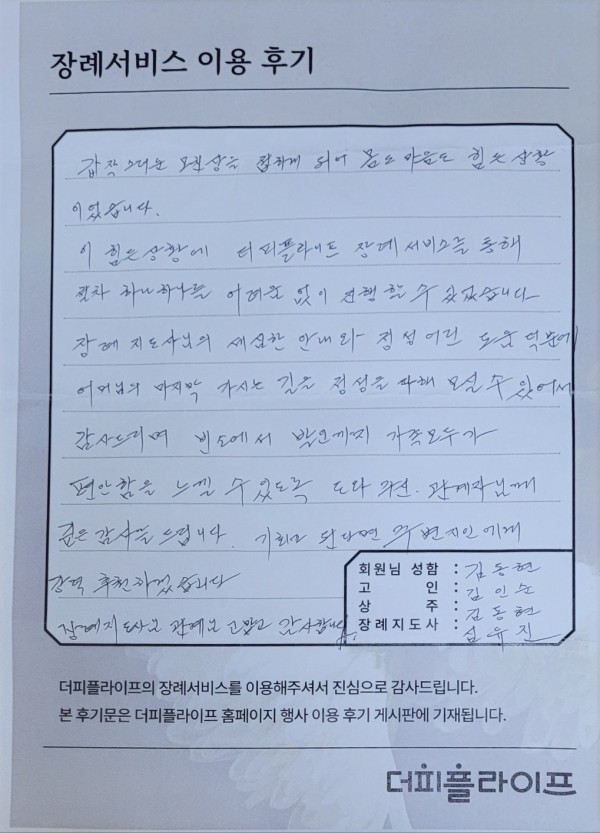 장례서비스 이용 후기
갑작스러운 모친상을 접하게 되어 몸도 마음도 힘든 상황
이었습니다.
이 힘든 상황에 더피플라이프 장례서비스를 통해
절차 하나하나를 어려움 없이 진행할 수 있었습니다
장례지도사님의 세심한 안내와 정성어린 도움 덕분에
어머님의 마지막 가시는 길을 정성을 다해 모실 수 있어서
감사드리며 빈소에서 발인까지 가족모두가
편안함을 느낄 수 있도록 도와 주신. 관계자님께
깊은 감사를 드립니다. 기회가 된다면 주변지인에게
강력 추천하겠습니다
장례지도사님 관계님 고맙고 감사합니다.
회원님 성함 : 김동현
고 인 : 김인순
상 주 : 김동현
장례지도사 : 심유진
더피플라이프의 장례서비스를 이용해주셔서 진심으로 감사드립니다.
본 후기문은 더피플라이프 홈페이지 행사 이용 후기 게시판에 기재됩니다.
더피플라이프